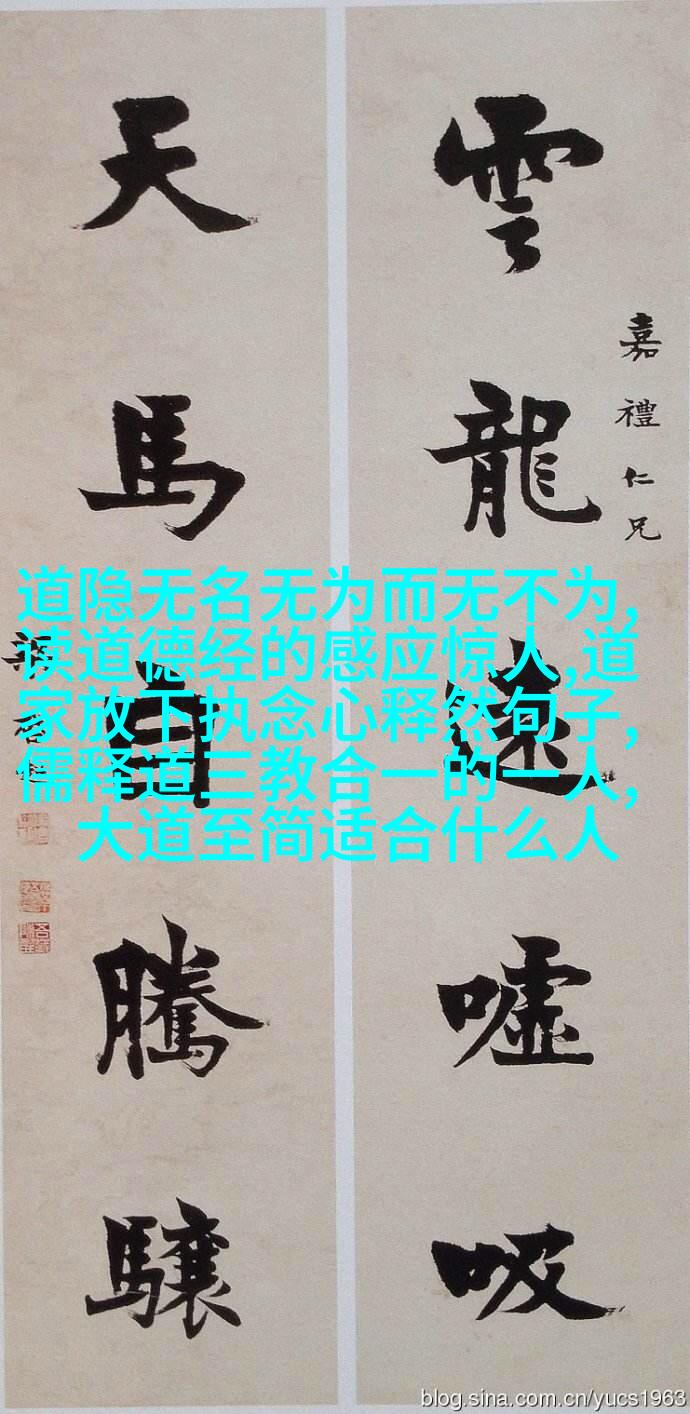 雲龍遠噓吸
嘉禮仁兄
天馬自騰驤
道隐无名无为而无不为,
读道德经的感应惊人,道
家放下执念心释然句子,
儒释道三教合一的一人,
大道至简适合什么人
blog.sina.com.cn/yucs1963